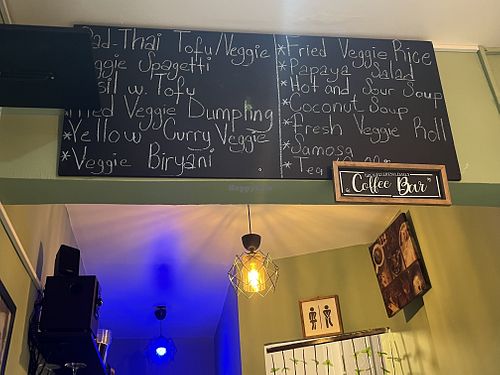 Pad-Thai Tofu/Veggie
Veggie Spagetti
w. Tofu
Veggie Dumpling
*Yellow Curry Veggie
*Veggie Biryani
*Fried Veggie Rice
*Papaya Salad
*Hot and Sour Soup
*Coconut Soup
*Fresh Veggie Roll
*Samosa
*Tea
"Coffee Bar"